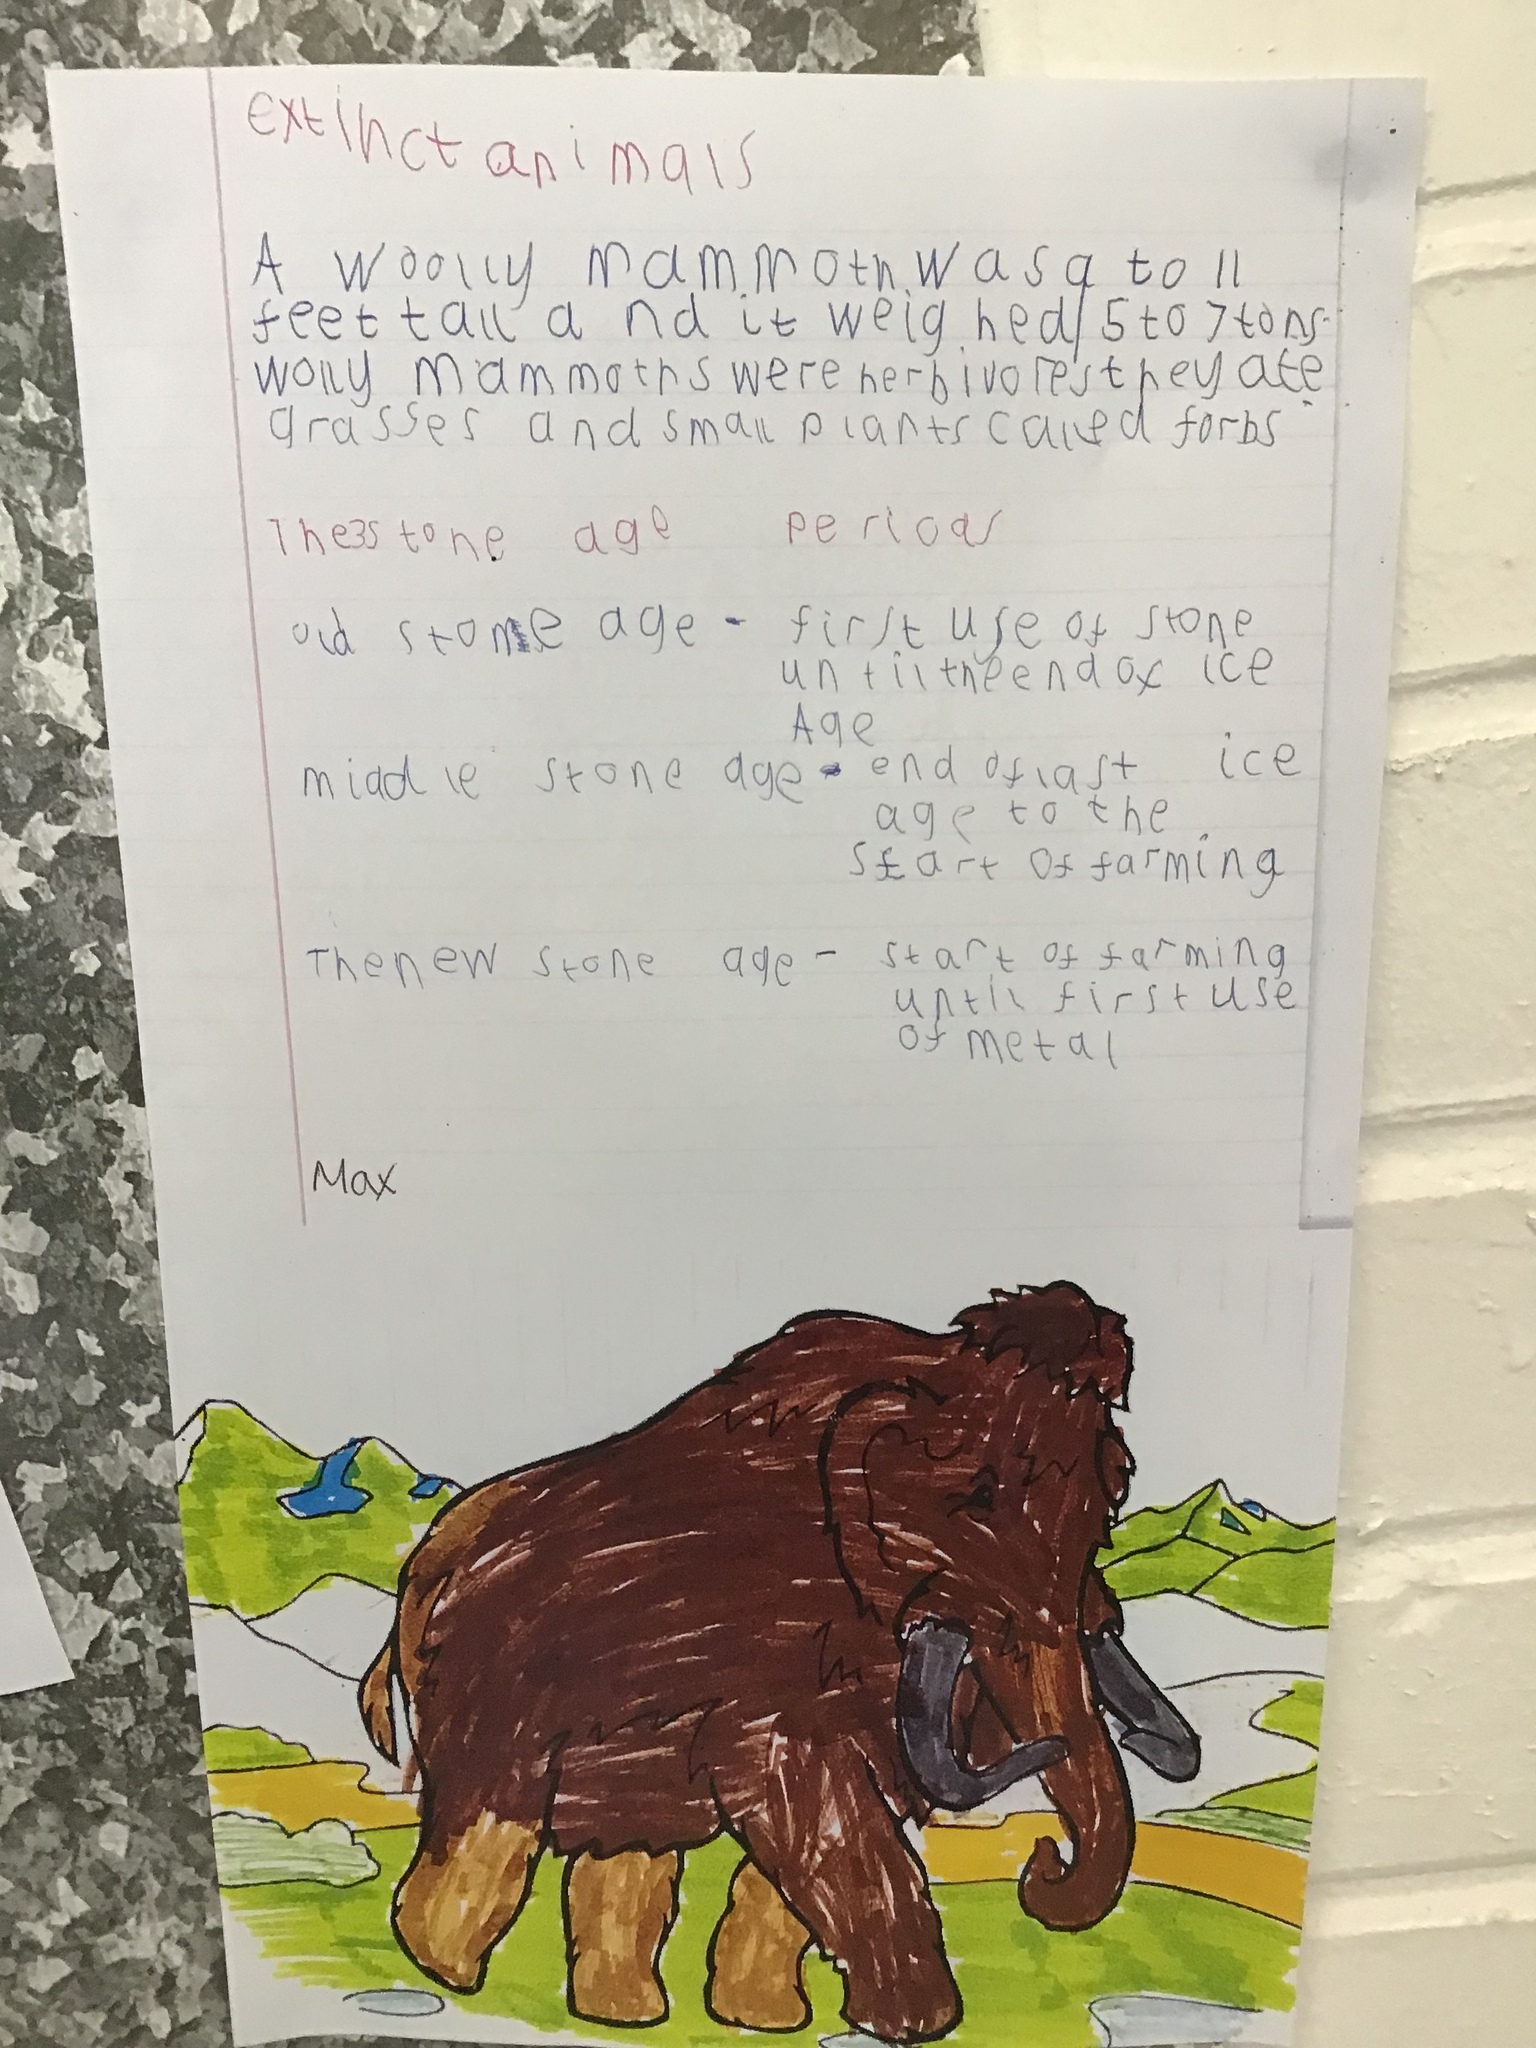 Extinct animals
A woolly mammoth was 9 to 11
feet tall and it weighed 5 to 7 tons.
wolly mammoths were herbivores they ate
grasses and small plants called forbs
The 3 stone age periods
old stone age - first use of stone
until the end of ice
Age
middle stone age - end of last ice
age to the
start of farming
The new stone age - start of farming
until first use
of metal
Max